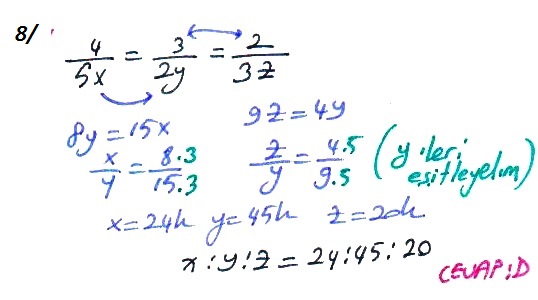 8/
4/5x = 3/2y = 2/3z
8y = 15x
9z = 4y
x/y = 8.3/15.3
z/y = 4.5/9.5 (y'leri eşitleyelim)
x=24k y=45k z=20k
x:y:z = 24:45:20
CEVAP:D